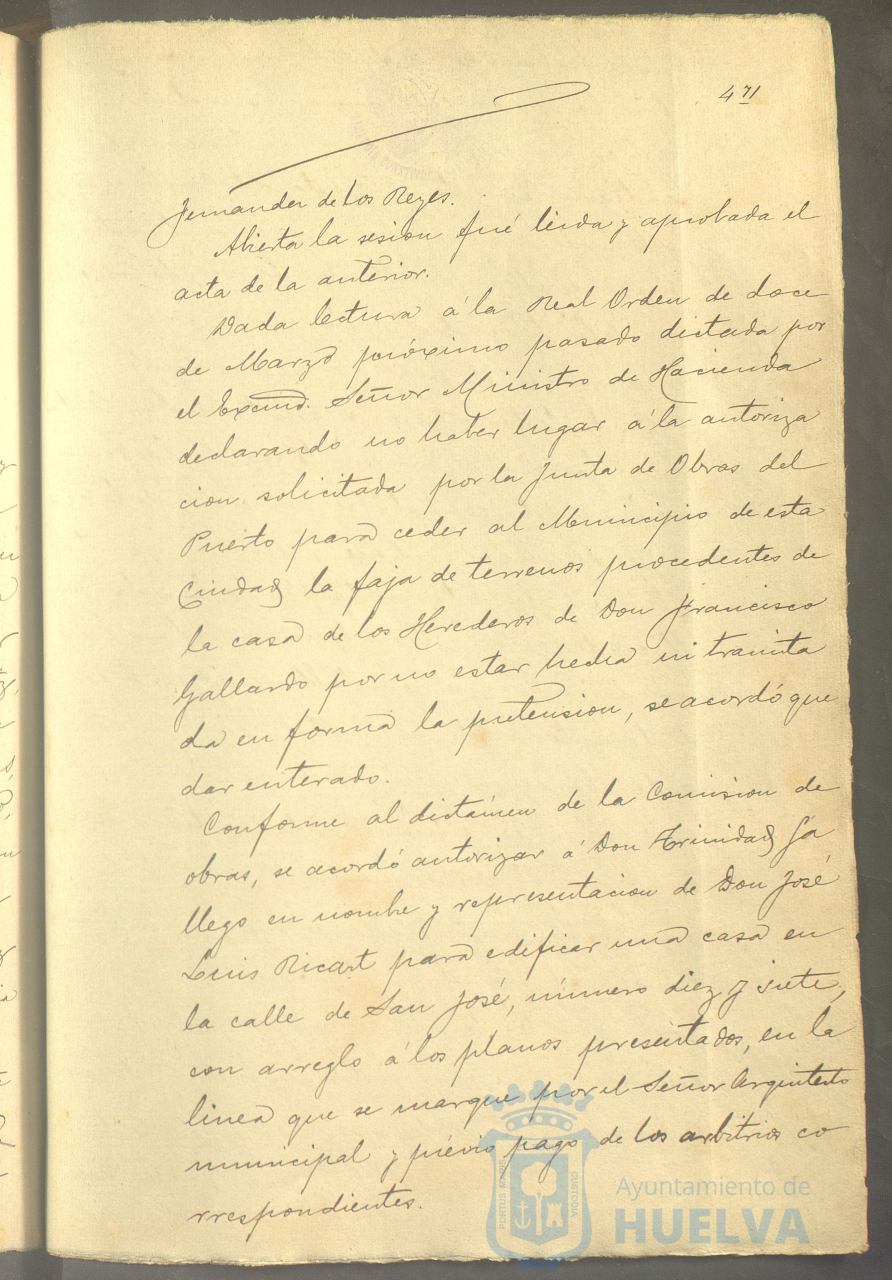 471
Fernandez de los Reyes.
Abierta la sesion fué leida y aprobada el
acta de la anterior.
Dada lectura á la Real Orden de doce
de Marzo próximo pasado dictada por
el Excmo. Señor Ministro de Hacienda
declarando no haber lugar á la autoriza
cion solicitada por la Junta de Obras del
Puerto para ceder al Municipio de esta
Ciudad la faja de terrenos procedentes de
la casa de los Herederos de Don Francisco
Gallardo por no estar hecha ni tramita
da en forma la pretension, se acordó que
dar enterado.
Conforme al dictámen de la Comision de
obras, se acordó autorizar á Don Trinidad Ga
llego en nombre y representacion de Don José
Luis Ricart para edificar una casa en
la calle de San José, número diez y siete,
con arreglo á los planos presentados, en la
linea que se marque por el Señor Arquitecto
municipal y prévio pago de los arbitrios co
rrespondientes.
PORTUS MARIS
CUSTODIA
Ayuntamiento de
HUELVA